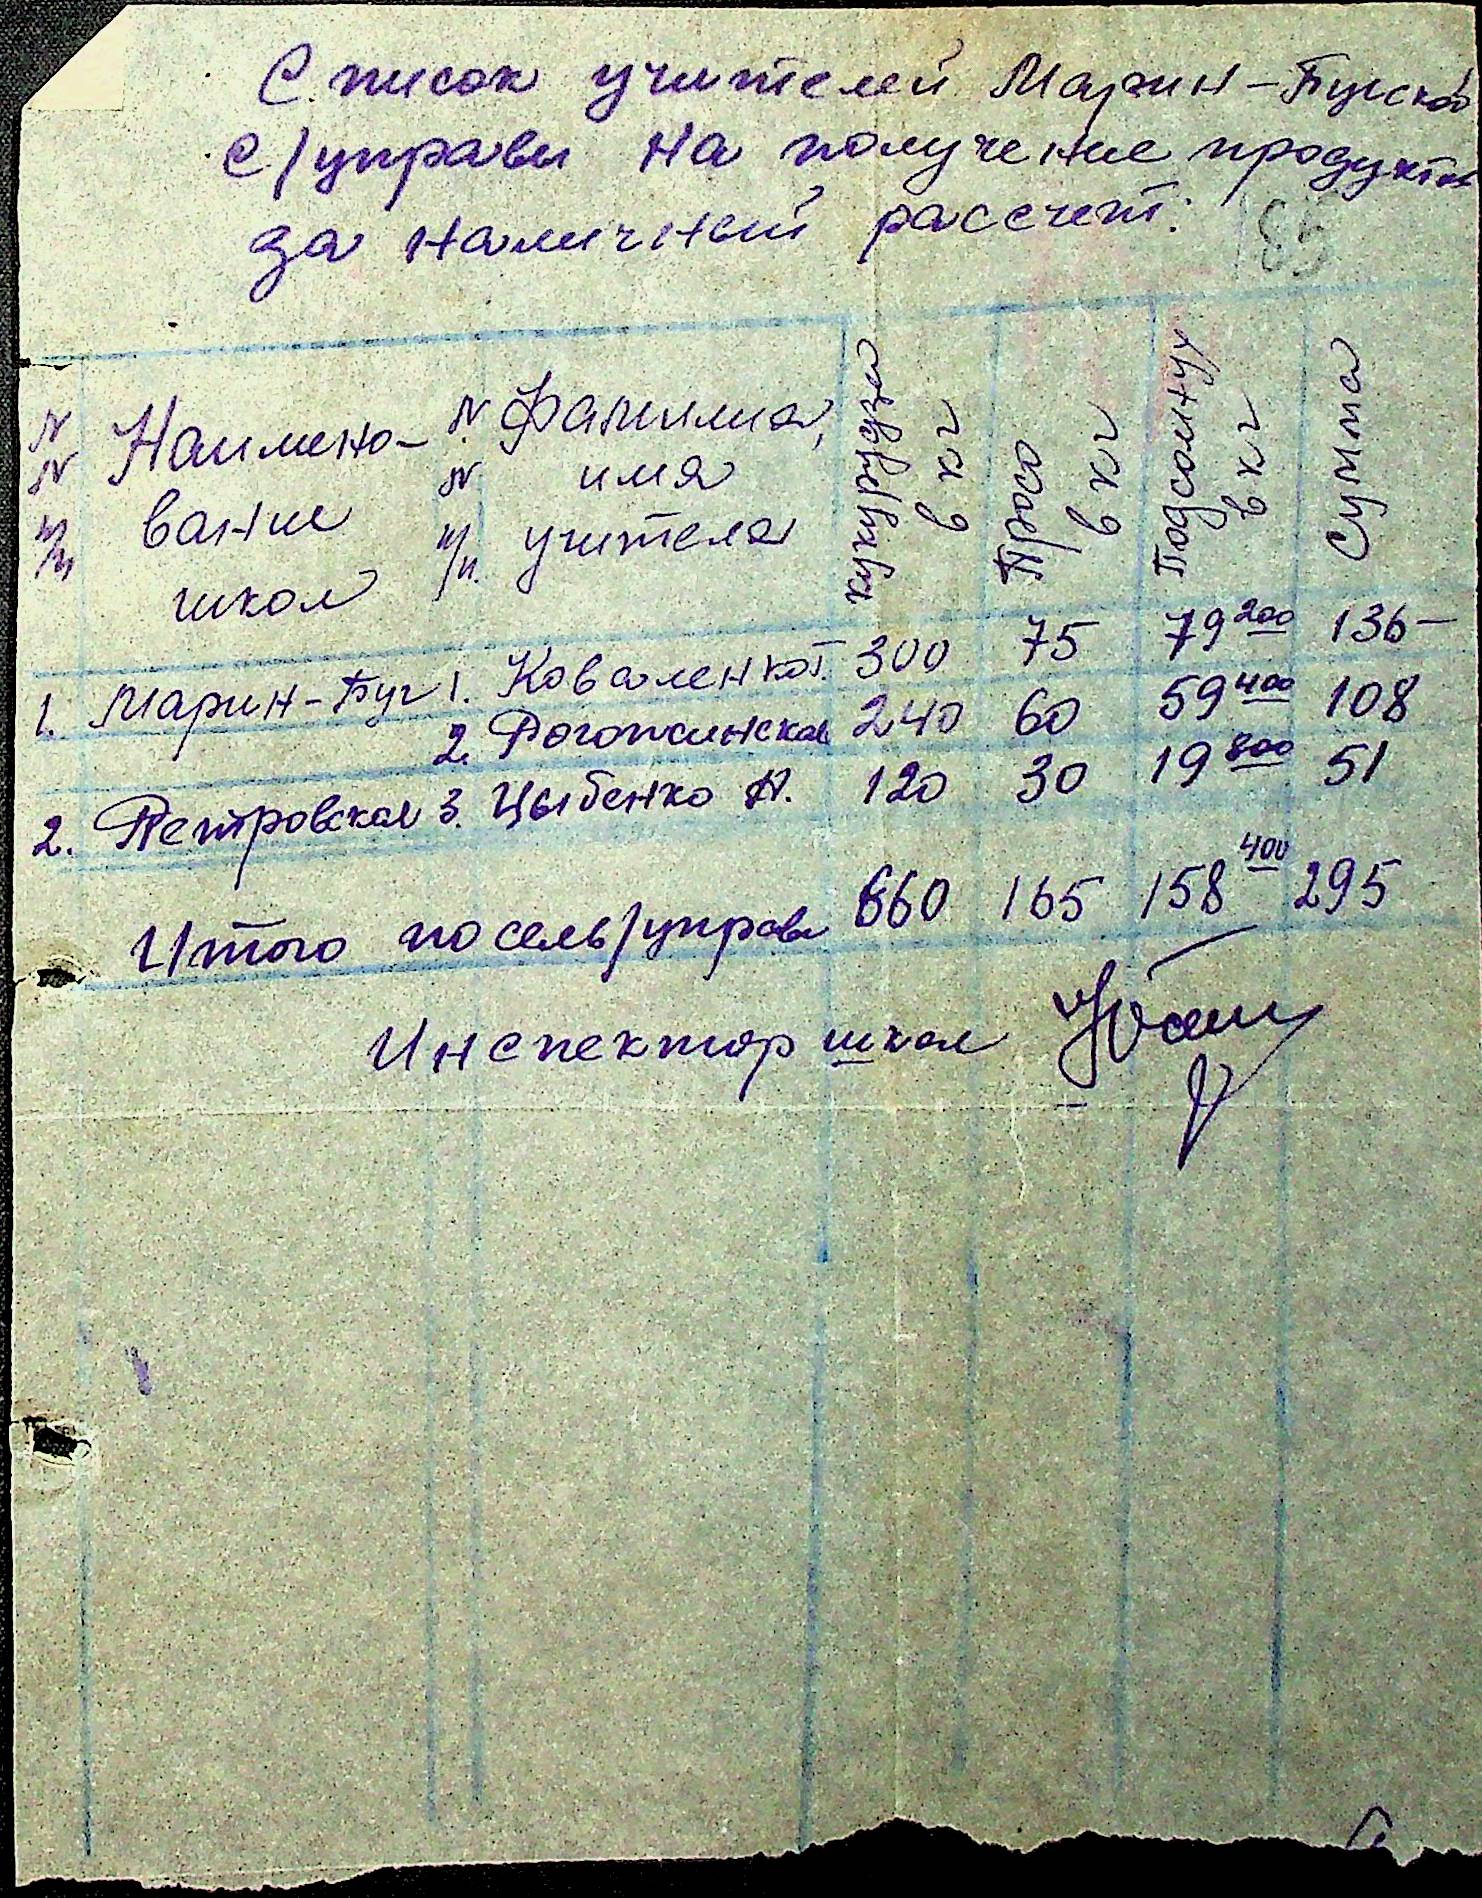 Список учителей Марин-Бугской
с/управы на получение продуктов
за наличный рассчет:
85
N N п/п Наимено-вание школ N N п/п Фамилия, имя учителя кукурудзы в кг Просо в кг Подсолнух в кг Сумма
1. Марин-Буг 1. Коваленко Т. 300 75 79 200 136-
2. Рогожинская 240 60 59 400 108
2. Петровская 3. Цыбенко А. 120 30 19 800 51
Итого по сель/управе 660 165 158 400 295
Инспектор школ